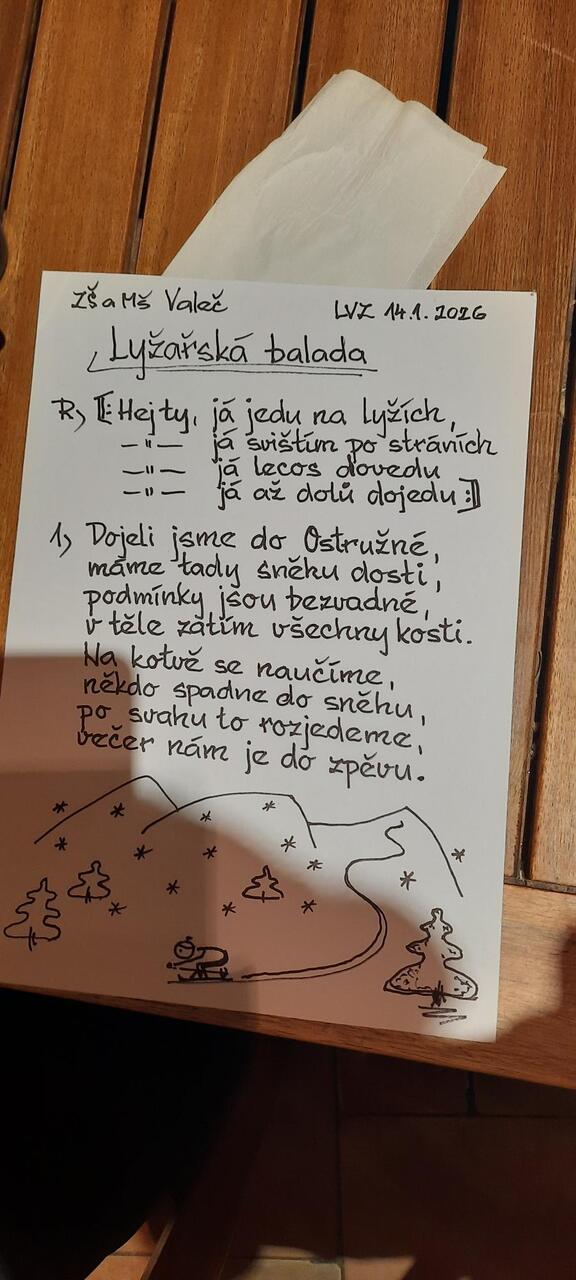 ZŠ a MŠ Valeč
LVZ 14.1.2026
Lyžařská balada
R, [: Hej ty, já jedu na lyžích,
—"— já svištím po stráních
—"— já lecos dovedu
—"— já až dolů dojedu :]
1, Dojeli jsme do Ostružné,
máme tady sněku dosti,
podmínky jsou bezvadné,
v těle zatím všechny kosti.
Na kotvě se naučíme,
někdo spadne do sněhu,
po svahu to rozjedeme,
večer nám je do zpěvu.